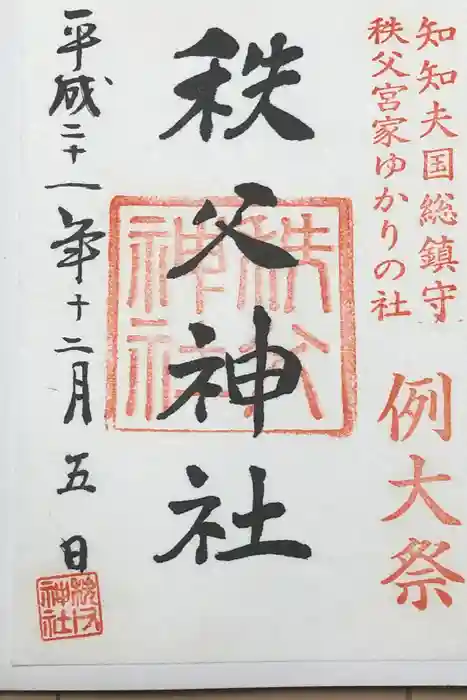 知知夫国総鎮守
秩父宮家ゆかりの社
例大祭
秩父神社
秩父
神社
平成二十一年十二月五日
秩父
神社